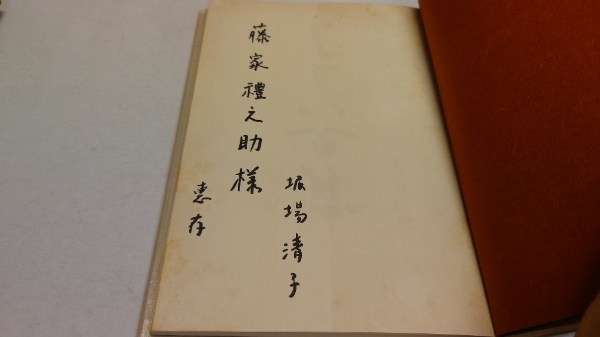 堀場清子
藤家禮之助様
恵存